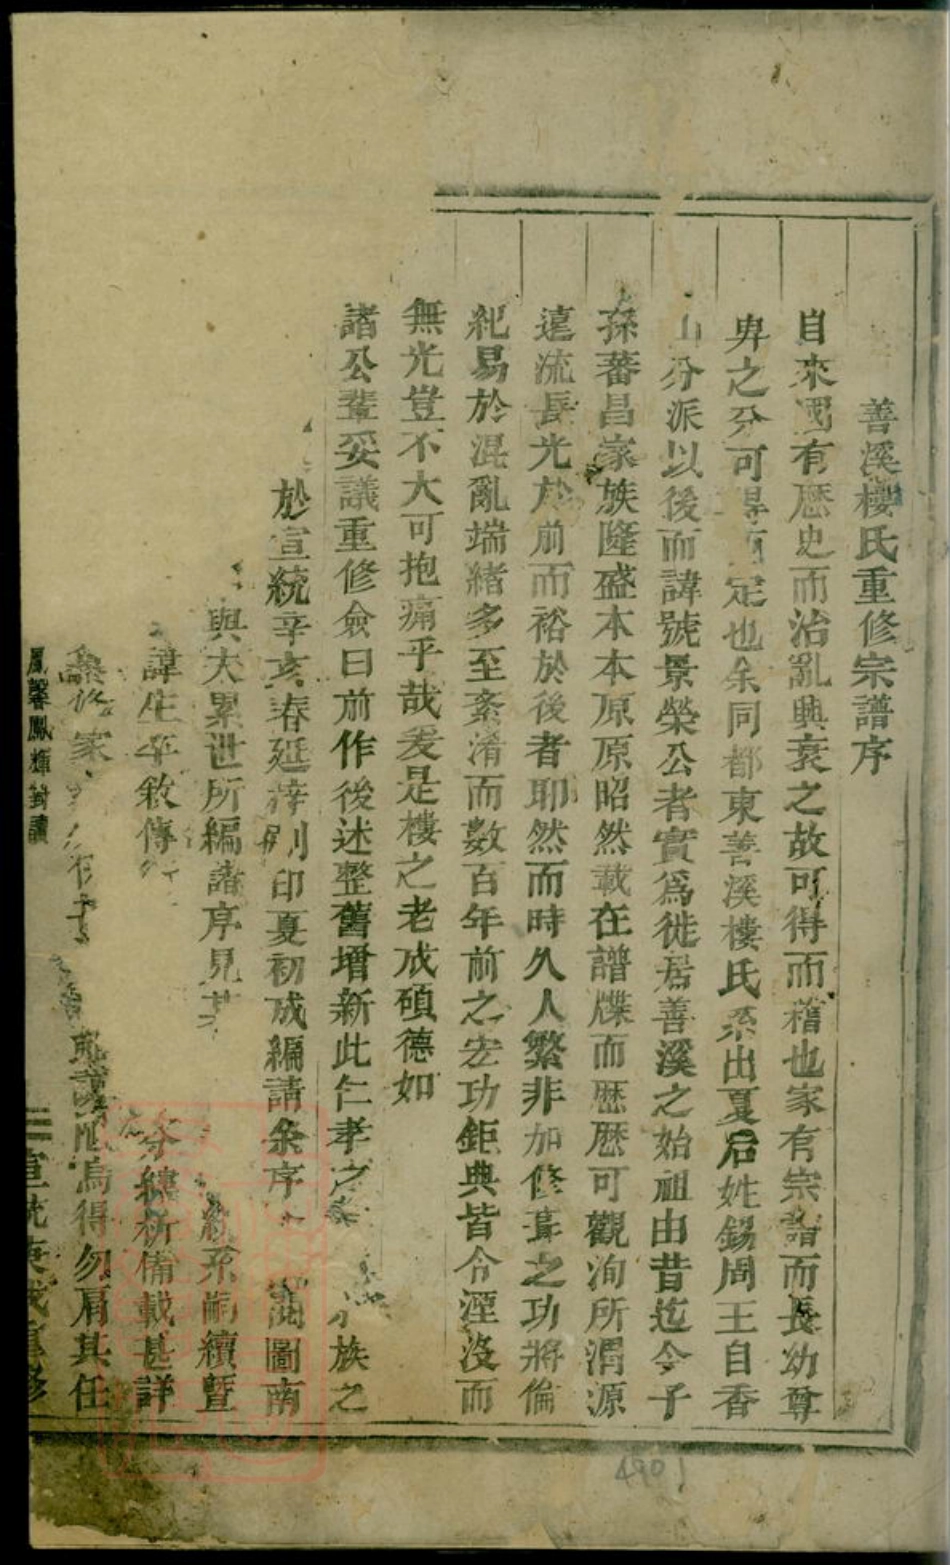 善溪樓氏重修宗譜序
自來國有歷史而治亂興衰之故可得而稽也家有宗譜而長幼尊
卑之分可得而定也余同都東善溪樓氏系出夏后姓錫周王自香
山分派以後而諱號景榮公者實爲徙居善溪之始祖由昔迄今子
孫蕃昌家族隆盛本本原原昭然載在譜牒而歷歷可觀洵所謂源
遠流長光於前而裕於後者耶然而時久人繁非加修葺之功將倫
紀易於混亂端緒多至紊淆而數百年前之宏功鉅典皆令湮沒而
無光豈不大可抱痛乎哉爰是樓之老成碩德如
諸公輩妥議重修僉曰前作後述整舊增新此仁孝之 族之
於宣統辛亥春延梓刷印夏初成編請余序 圖南
與大累世所編諸序見其 系嗣續暨
諱生卒敘傳 分縷析備載甚詳
修家 焉得勿肩其任
鳳馨鳳輝對讀
宣統庚戌重修
4901